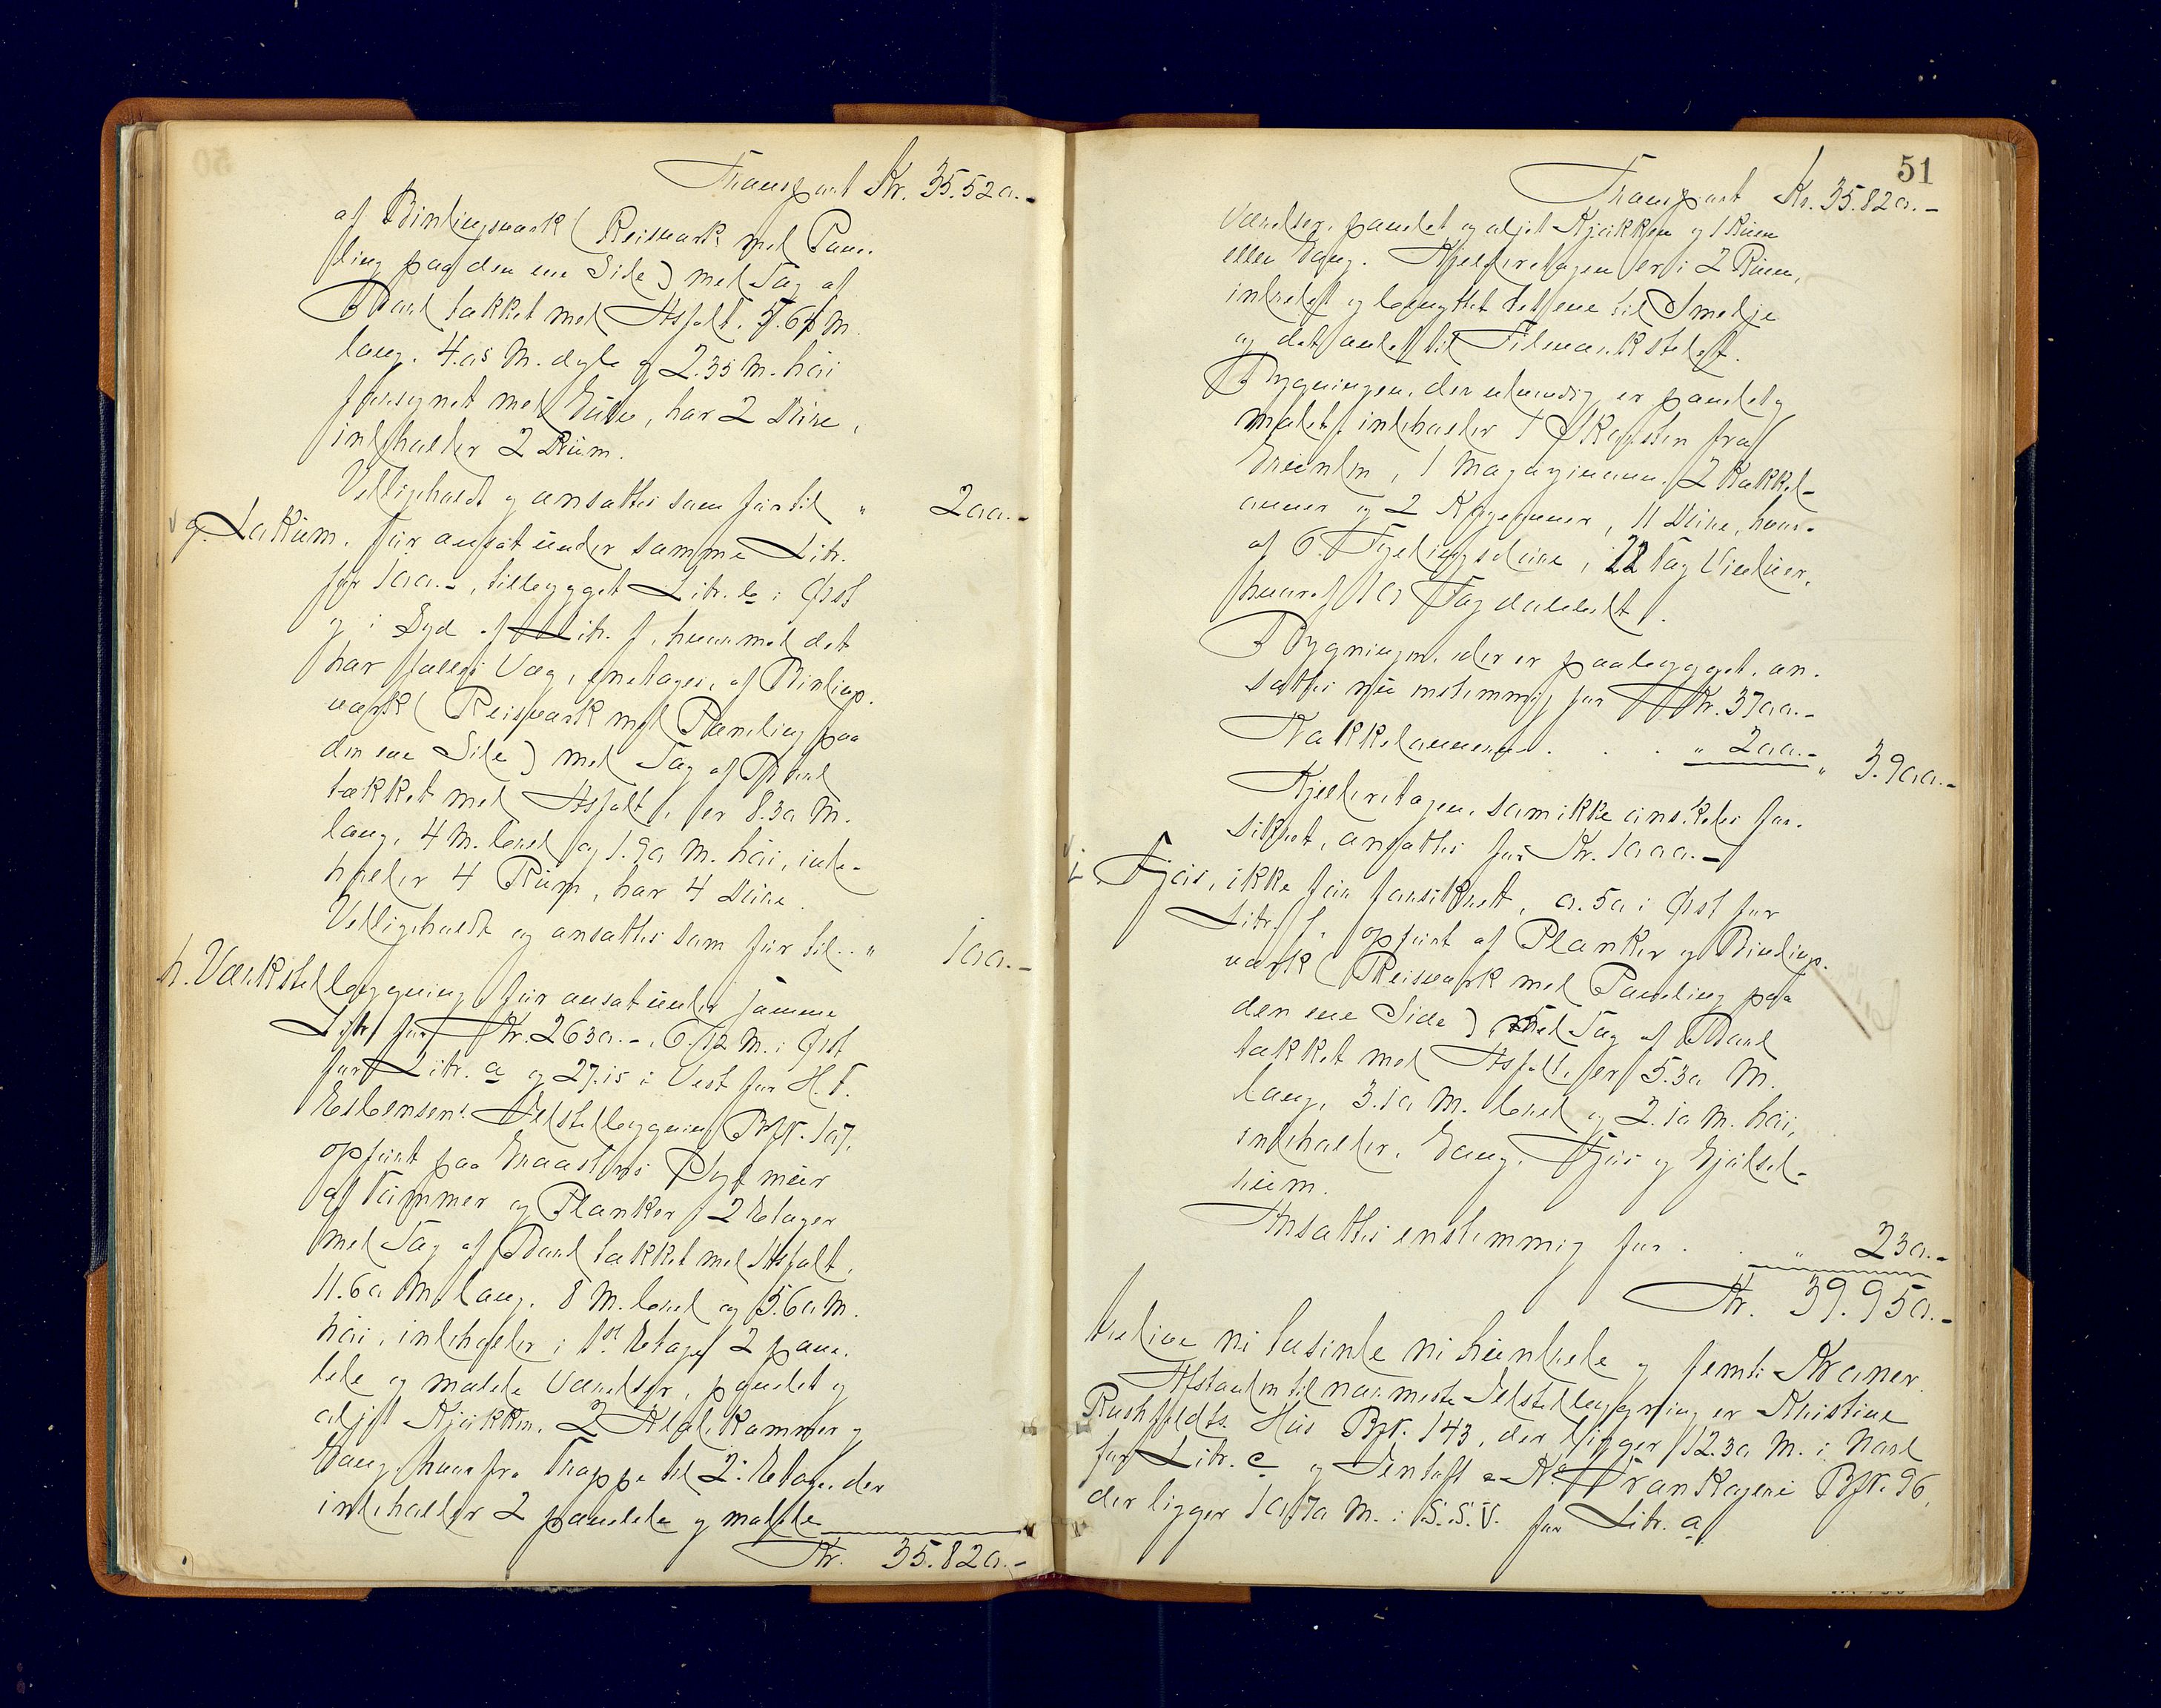 Transport Kr. 35.520.-
af Bindingsværk (Reisværk med Pane-
ling paa den ene Side) med Tag af
Bord tækket med Asfalt, 5.65 M.
lang, 4.05 M. dyb og 2.35 M. høi
forsynet med Gulv, har 2 Døre,
indeholder 2 Rum.
Vedligeholdt og ansattes som før til " 200.-
g. Lokum, før ansat under samme Litr.
for 100.-, tilbygget Litr. b i Øst
og i Syd af Litr. f, hvormed det
har fælles Væg, enetages, af Bindings-
værk (Reisværk med Paneling paa
den ene Side) med Tag af Bord
tækket med Asfalt, er 8.30 M.
lang, 4 M. bred og 1.90 M. høi, inde-
holder 4 Rum, har 4 Døre.
Vedligeholdt og ansattes som før til .. " 100.-
h. Værkstedbygning før ansat under samme
Litr. for Kr. 2630.-, 6.12 M. i Øst
for Litr. a og 27.15 i Vest for H. T.
Esbensens Ildstedbygning BN. 107,
opført paa Graastens Grundmur
af Tømmer og Planker, 2 Etager
med Tag af Bord tækket med Asfalt,
11.60 M. lang, 8 M. bred og 5.60 M.
høi, indeholder i 1ste Etage 2 pane-
lede og malede Værelser, panelet og
oljet Kjøkken, 2 Kammer og
Gang, hvorfra Trappe til 2: Etage, der
indeholder 2 panelede og malede
Kr. 35.820.-
51
Transport Kr. 35.820.-
Værelser, panelet og oljet Kjøkken og 1 Rum
eller Gang. Kjelderetagen er i 2 Rum,
indredet og benyttet det ene til Smedje
og det andet til Filværksted.
Bygningen, der udvendig er panelet og
malet, indeholder 1 Skorsten fra
Grunden, 1 Magasinovn, 2 Kakkel-
ovner og 2 Kogeovner, 11 Døre, hvor-
af 6 Fyldingsdøre, 22 Fag Vinduer,
hvoraf 10 Fag dobbelt.
Bygningen, der er paabygget, an-
sættes nu enstemmig for Kr. 3700.-
Kakkelovnene . . . " 200.- " 3.900.-
Kjelderetagen, som ikke ønskedes for-
sikret, ansattes for Kr. 1000.-
i. Fjøs, ikke før forsikret, 0.50 i Øst for
Litr. f, opført af Planker og Bindings-
værk (Reisværk med Paneling paa
den ene Side) med Tag af Bord
tækket med Asfalt, er 5.30 M.
lang, 3.10 M. bred og 2.10 M. høi,
indeholder, Gang, Fjøs og Gjødsel-
rum.
Ansattes enstemmig for . . " 230.-
Kr. 39.950.-
tredive ni tusinde ni hundrede og femti Kroner.
Afstanden til nærmeste Ildstedbygning er Kristine
Rushfeldts Hus BN. 143, der ligger 12.30 M. i Nord
for Litr. c og Trankogeri BN. 96,
der ligger 10.70 M. i S.S.V. for Litr. a.